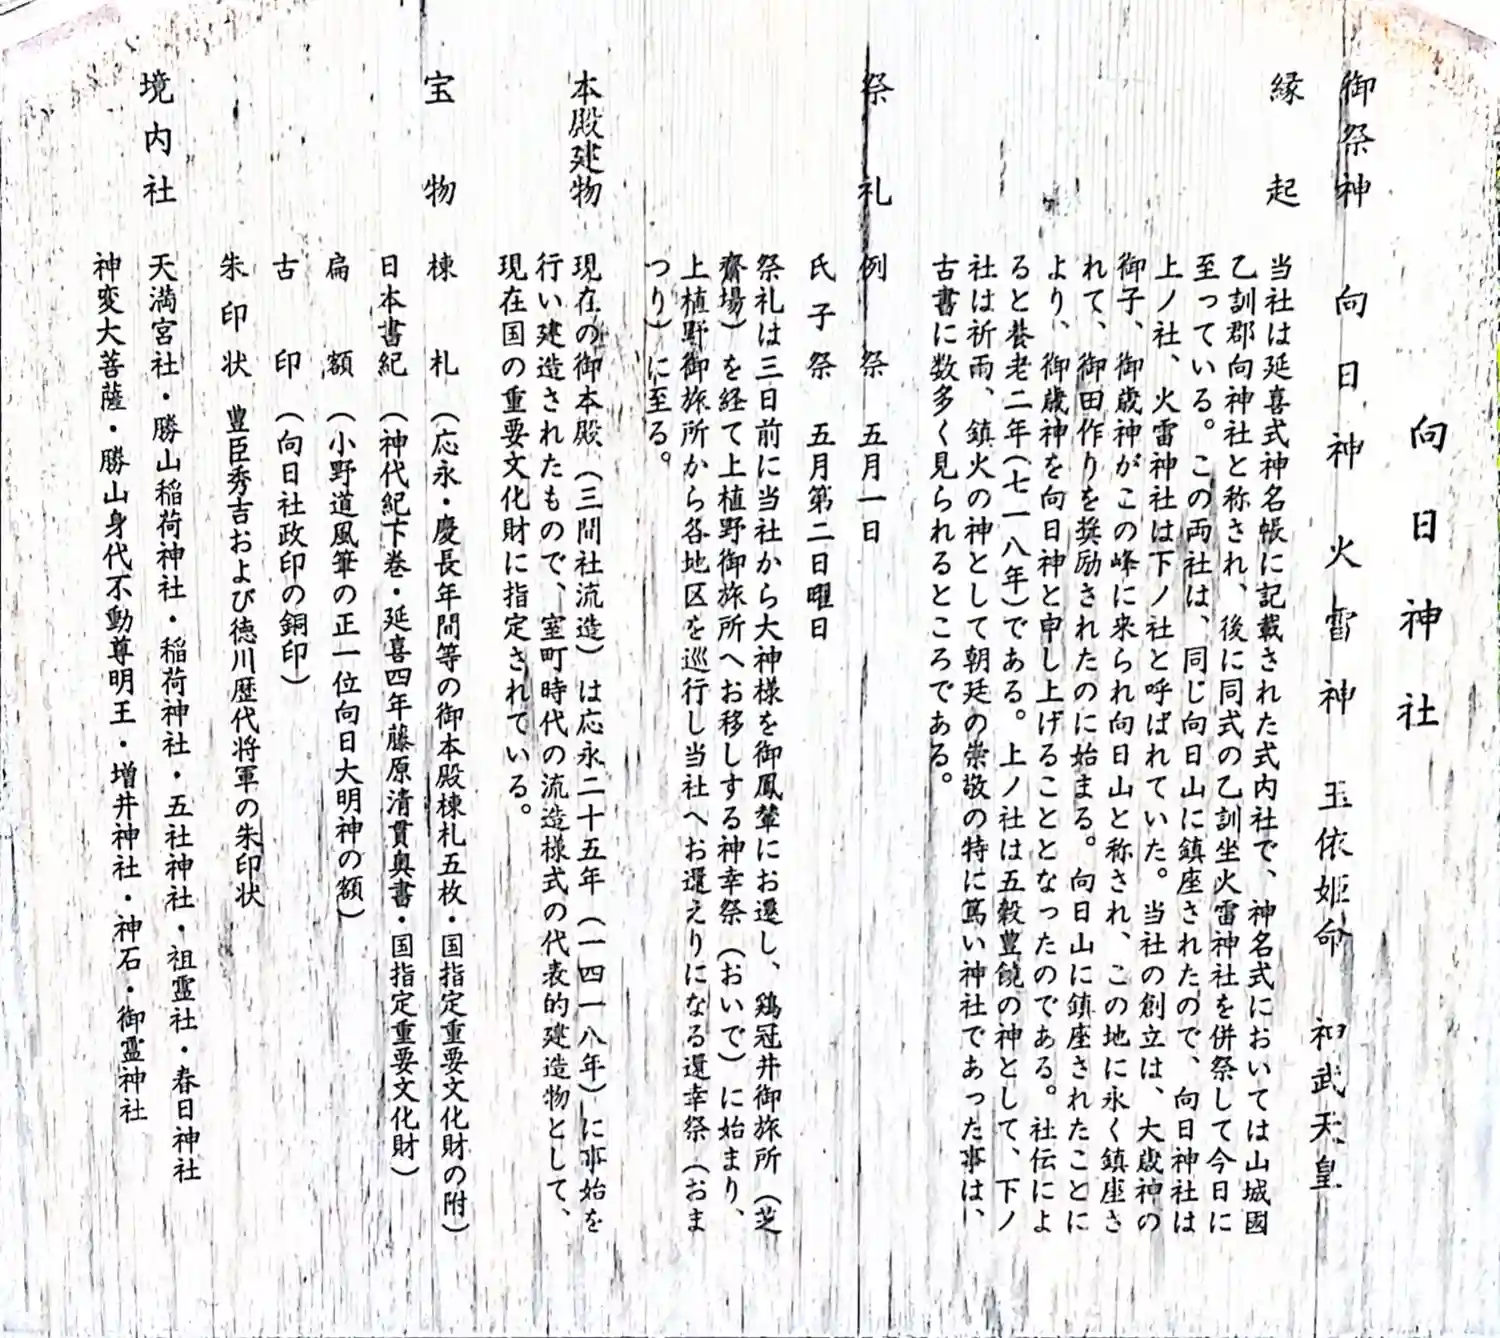 向日神社
御祭神　向日神　火雷神　玉依姫命　神武天皇
縁起　当社は延喜式神名帳に記載された式内社で、神名式においては山城國
乙訓郡向神社と称され、後に同式の乙訓坐火雷神社を併祭して今日に
至っている。この両社は、同じ向日山に鎮座されたので、向日神社は
上ノ社、火雷神社は下ノ社と呼ばれていた。当社の創立は、大歳神の
御子、御歳神がこの峰に来られ向日山と称され、この地に永く鎮座さ
れて、御田作りを奨励されたのに始まる。向日山に鎮座されたことに
より、御歳神を向日神と申し上げることとなったのである。社伝によ
ると養老二年（七一八年）である。上ノ社は五穀豊饒の神として、下ノ
社は祈雨、鎮火の神として朝廷の崇敬の特に篤い神社であった事は、
古書に数多く見られるところである。
祭礼　例祭　五月一日
氏子祭　五月第二日曜日
祭礼は三日前に当社から大神様を御鳳輦にお遷し、鶏冠井御旅所（芝
齋場）を経て上植野御旅所へお移しする神幸祭（おいで）に始まり、
上植野御旅所から各地区を巡行し当社へお還えりになる還幸祭（おま
つり）に至る。
本殿建物　現在の御本殿（三間社流造）は応永二十五年（一四一八年）に事始を
行い建造されたもので、室町時代の流造様式の代表的建造物として、
現在国の重要文化財に指定されている。
宝物　棟札（応永・慶長年間等の御本殿棟札五枚・国指定重要文化財の附）
日本書紀（神代紀下巻・延喜四年藤原清貫奥書・国指定重要文化財）
扁額（小野道風筆の正一位向日大明神の額）
古印（向日社政印の銅印）
朱印状　豊臣秀吉および徳川歴代将軍の朱印状
境内社　天満宮社・勝山稲荷神社・稲荷神社・五社神社・祖霊社・春日神社
神変大菩薩・勝山身代不動尊明王・増井神社・神石・御霊神社